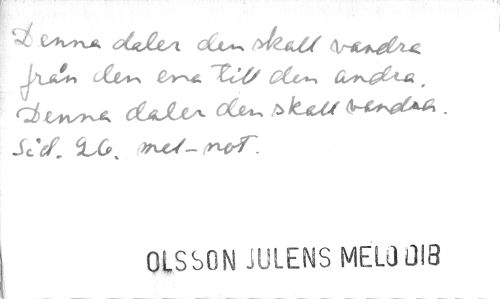 Denna daler den skall vandra
från den ena till den andra.
Denna daler den skall vandra.
Sid. 26. mel-not.
OLSSON JULENS MELODIB